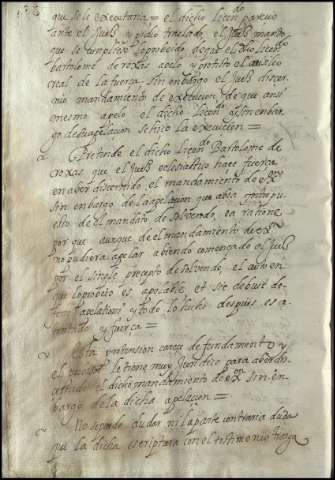 que se le executaria y el dicho licendo parecio
ante el Juez y pidio traslado, el Juez mando
que se cumpliese lo proveido de que el dho licendo
bartolome de roxas apelo y protesto el auxilio
real de la fuerça; sin embargo el Juez discer
nio mandamiento de execucion, de que ansi
mesmo apelo el dicho licendo y sin embar
go de su apelacion se hiço la execucion =
Pretende el dicho licendo Bartolome de
roxas que el Juez eclesiastico hace fuerça
en aber discernido el mandamiento de exon
sin embargo de la apelacion que abia interpu
esto de el mandato de solvendo, ea ratione
por que aunque de el mandamiento de exon
no pudiera apelar abiendo començado el Juez
por el simple precepto de solvendo, el auto en
que lo proveio es apelable et sic debuit de
ferri apelationi y todo lo hecho despues es a
tentado y fuerça =
Esta pretension carece de fundamento y
el Juez le tiene muy Juridico para aber des
pachado el dicho mandamiento de exon sin em
bargo de la dicha apelacion =
No se puede dudar ni la parte contraria duda
que la dicha escriptura con el testimonio traiga